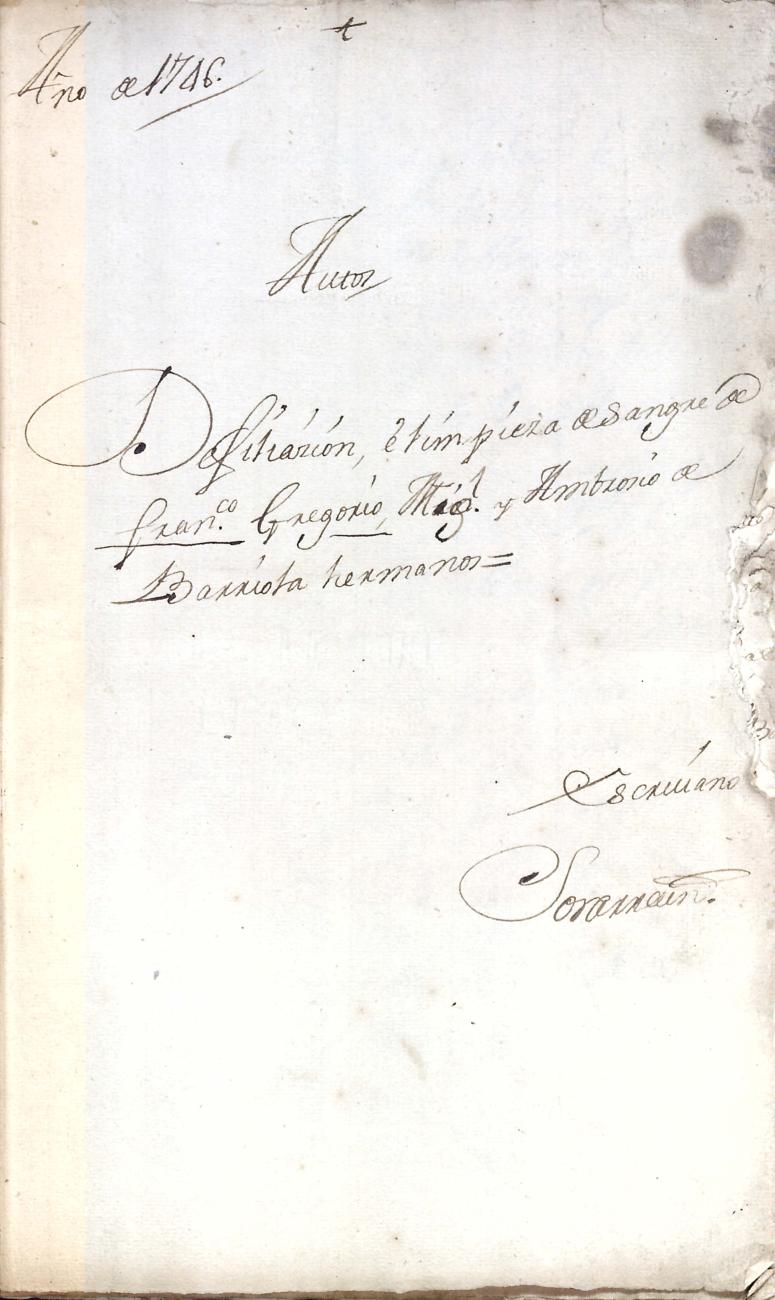 +
Año de 1746.
Autos
De filiazion, é limpieza de Sangre de
fran.co Gregorio, Mig.l y Ambrosio de
Barriola hermanos=
Escriuano
Sorarrain.